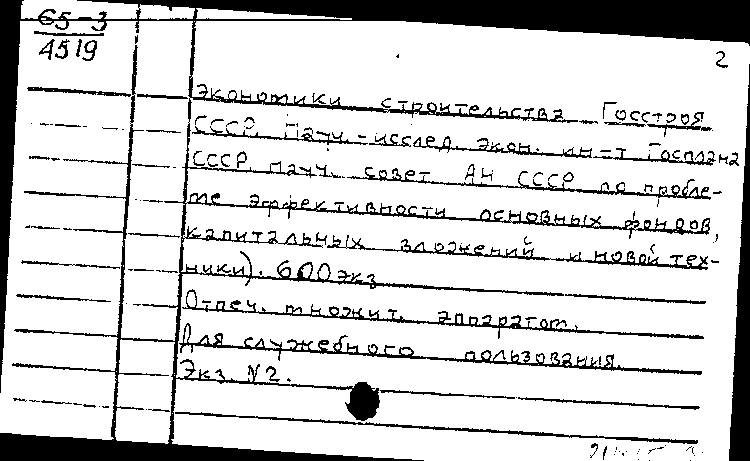 65-3
4519
2
Экономики строительства Госстроя
СССР. Науч.-исслед. экон. ин-т Госплана
СССР. Науч. совет АН СССР по пробле-
ме эффективности основных фондов,
капитальных вложений и новой тех-
ники). 600 экз
Отпеч. множит. аппаратом.
Для служебного пользования.
Экз. №2.